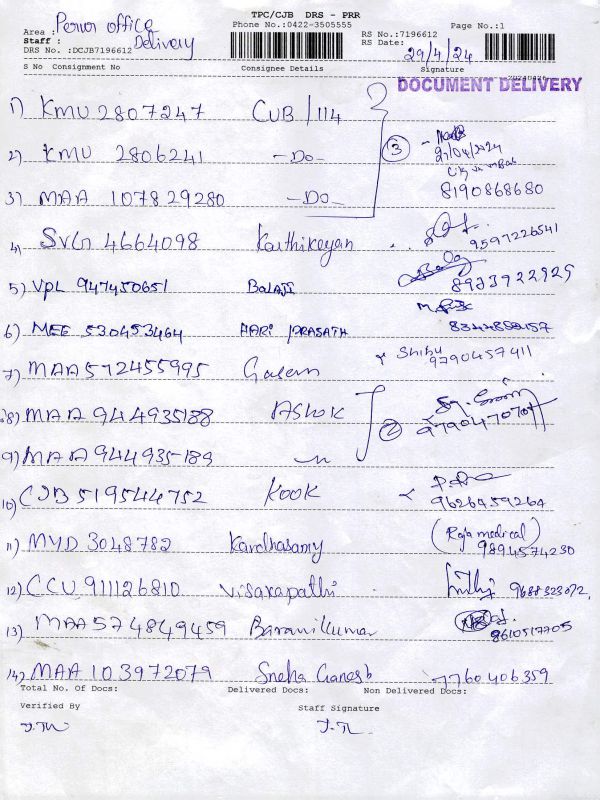 TPC/CJB DRS - PRR
Phone No.:0422-3505555
Page No.:1
Area : Perur office
Staff : Delivery
DRS No. :DCJB7196612
RS No.:7196612
RS Date: 29/4/24
S No Consignment No Consignee Details Signature
DOCUMENT DELIVERY
1) KMU 2807247 CUB/114
2) KMU 2806241 -Do- 3 27/04/2024
3) MAA 107829280 -Do- 8190868680
4) SVG 4664098 Karthikeyan 9597226541
5) VPL 947450651 BALAJI 8923922925
6) MEE 530453464 HARI PRASATH
7) MAA 572455995 Shibu 9790457911
8) MAA 944935188 ASHOK 2 9790470707
9) MAA 944935189 -"-
10) CJB 519544752 KOOK 9626959264
11) MYD 3048782 Kandhasamy (Raja medical) 9894574230
12) CCU 911126810 Visakapathi 9688323072
13) MAA 574849459 Baranikumar 8610517705
14) MAA 103972079 Sneha Ganesh 7760406359
Total No. Of Docs: Delivered Docs: Non Delivered Docs:
Verified By Staff Signature